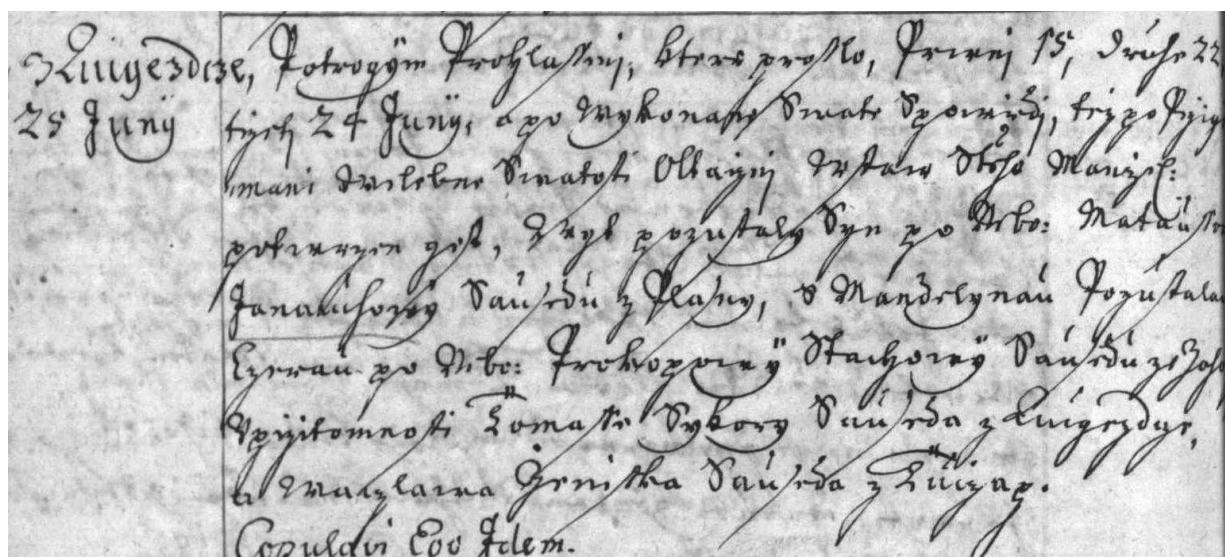 z Augezdcze, Potrogÿm Prohlassenj, ktere prosslo, Prwnj 15, druhe 22
25 Junÿ tržetj 24 Junÿ, a po Wykonanj Swate Spowědj, téz po Pržigi
manj Welebne Swatosti Oltaržnj Wstaw Stého Manžel:
potwrzen gest, Wyt pozustaly Syn po Nebo: Mataussowi
Janauchowÿ Sauseduz Plasny, s Mandelynau Pozustalau
Czerau po Nebo: Prokopowÿ Stachowÿ Sausedu ze
Vpržitomnosti Tomasse Sykory Sauseda z Augezdcze,
a Waczlawa Ženisska Sauseda z
Copulavi Ego Idem.